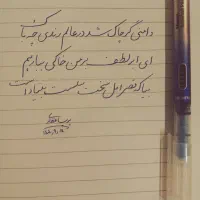 دامنی گر چاک شد در عالم رندی چه باک
ای ابر لطف بر من خاکی ببار
بیا که قصر امل سخت سست بنیاد است